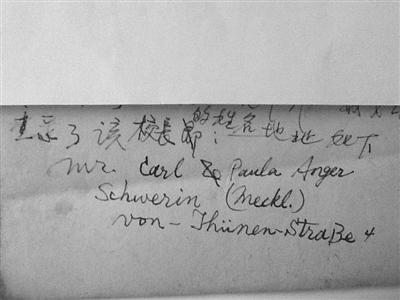 了该校长的姓名地址如下
Mr. Carl & Paula Anger
Schwerin (Meckl.)
von-Thünen-Straße 4